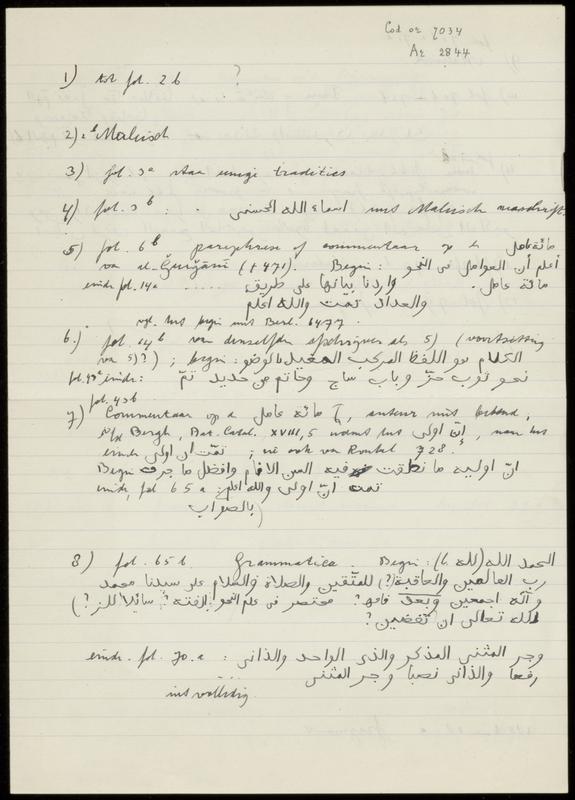 Cod or 7034
Ar 2844
1) tot fol. 2b ?
2) Maleisch
3) fol. 3a staan enige tradities
4) fol. 3b اسماء الله الحسنى met Maleisch
5) fol. 6b paraphrase of commentaar op مائة عامل
van al-Ǧurǧānī (+471). Begin: أعلم أن العوامل فى النحو مائة عامل.
einde fol. 14a ...... واردنا بيانها على طريق
والعداد تمت والله اعلم
begin met Berl. 6477
6.) fol. 14b van denzelfden als 5) (voortzetting
van 5)?) ; begin: الكلام هو اللفظ المركب المفيد بالوضع
fol. 43a einde: نحو ثوب خزّ وباب ساج وخاتم من حديد تمّ
fol. 43b
7) Commentaar op مائة عامل, auteur niet bekend,
v/d Bergh, Bat. Catal. XVIII, 5 انّ اولى,
einde تمت ان اولى ; zie ook van Ronkel 728.
Begin انّ اوليه ما نطقت فيه السن الاقام وافضل ما جرت
einde, fol 65a: تمت انّ اولى والله اعلم
(بالصواب
8) fol. 65b. Grammatica. Begin: الحمد الله (لله .l)
رب العالمين والعاقبة(?) للمتّقين والصلاة والسلام على سيدنا محمد
وآله اجمعين وبعد مختصر فى علم النحو
لله تعالى ان
einde. fol. 70.a : وجر المثنى المذكر والذى الواحد والذانى
رفعا والذانى نصبا وجر المثنى
...
niet volledig